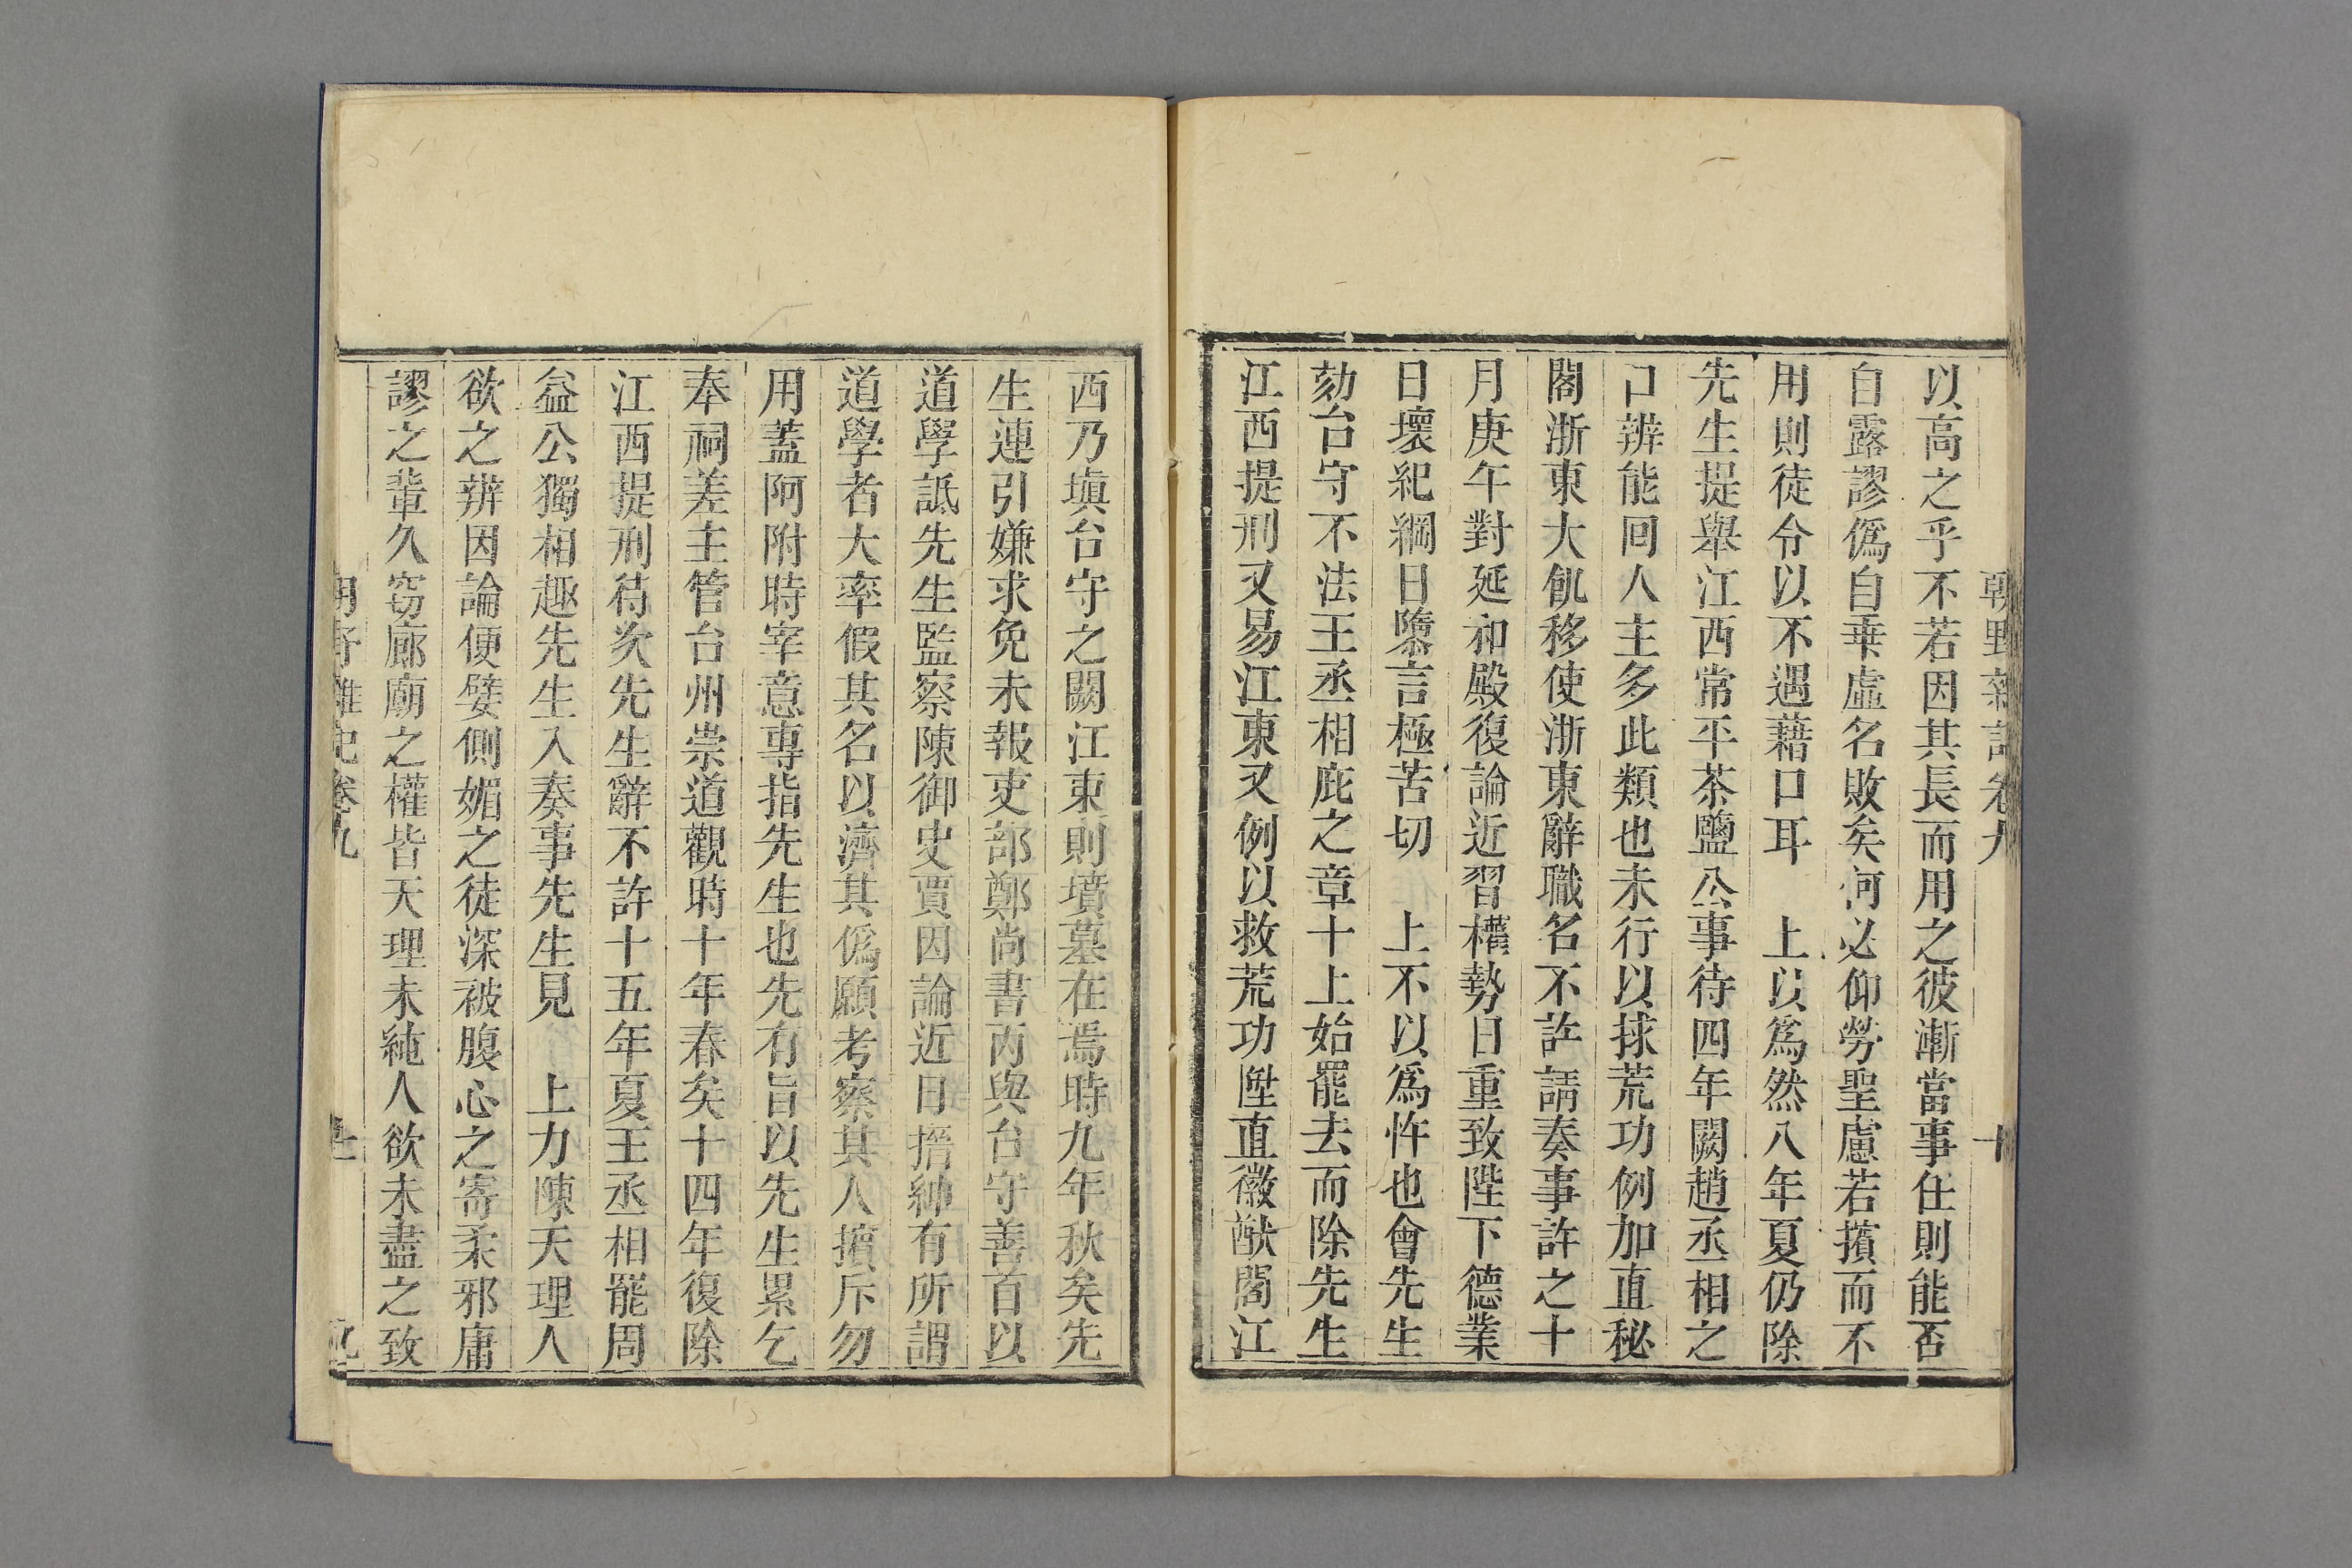 朝野雜記卷九 十
以高之乎不若因其長而用之彼漸當事任則能否
自露謬僞自乗虛名敗矣何必仰勞聖慮若擯而不
用則徒令以不遇藉口耳　上以爲然八年夏仍除
先生提舉江西常平茶鹽公事待四年闕趙丞相之
口辨能回人主多此類也未行以捄荒功例加直秘
閣浙東大飢移使浙東辭職名不許請奏事許之十
月庚午對延和殿復論近習權勢日重致陛下德業
日壞紀綱日隳言極苦切　上不以爲忤也會先生
劾台守不法王丞相庇之章十上始罷去而除先生
江西提刑又易江東又例以救荒功陞直徽猷閣江
西乃塡台守之闕江東則墳墓在焉時九年秋矣先
生連引嫌求免未報吏部鄭尚書丙與台守善首以
道學詆先生監察陳御史賈因論近日搢紳有所謂
道學者大率假其名以濟其僞願考察其人擯斥勿
用蓋阿附時宰意專指先生也先有旨以先生累乞
奉祠差主管台州崇道觀時十年春矣十四年復除
江西提刑待次先生辭不許十五年夏王丞相罷周
益公獨相趣先生入奏事先生見　上力陳天理人
欲之辨因論便嬖側媚之徒深被腹心之寄柔邪庸
謬之輩久竊廊廟之權皆天理未純人欲未盡之致
卷九